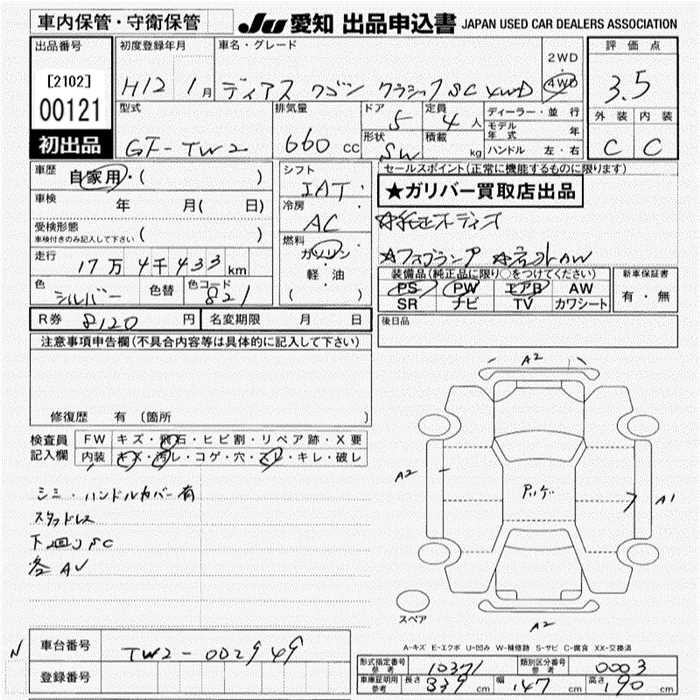 車内保管・守衛保管
Ju 愛知 出品申込書 JAPAN USED CAR DEALERS ASSOCIATION
出品番号
[2102]
00121
初出品
初度登録年月
H12 1月
車名・グレード
ディアス ワゴン クラシック SC 4WD
2WD
4WD
評価点
3.5
外装 内装
C C
型式
GF-TW2
排気量
660 cc
ドア
5
定員
4人
形状
SW
積載
kg
ディーラー・並行
モデル年式 年
ハンドル 左・右
車歴
自家用・( )
車検 年 月( 日)
受検形態
車検付きのみ記入して下さい ( )
走行
17万 4千 433 km
色
シルバー
色替
色コード
821
シフト
IAT
冷房
AC
燃料
ガソリン
軽・油
( )
セールスポイント(正常に機能するものに限ります)
★ガリバー買取店出品
☆純正オーディオ
☆フォグランプ ☆社外AW
装備品(純正品に限り○をつけてください)
PS PW エアB AW
SR ナビ TV カワシート
新車保証書
有・無
R券 8120 円
名変期限 月 日
後日品
注意事項申告欄(不具合内容等は具体的に記入して下さい)
修復歴 有 (箇所
検査員記入欄
FW キズ・飛石・ヒビ割・リペア跡・X要
内装 キズ・汚レ・コゲ・穴・スレ・キレ・破レ
シミ・ハンドルカバー有
スタッドレス
下回りSC
各AU
A2
A2
A1
A2
スペア
A-キズ E-エクボ U-凹み W-補修跡 S-サビ C-腐食 XX-交換済
N
車台番号
TW2-002949
登録番号
形式指定番号 参考
10371
類別区分番号 参考
0003
車庫証明用 参考
長さ 339 cm 幅 147 cm 高さ 190 cm